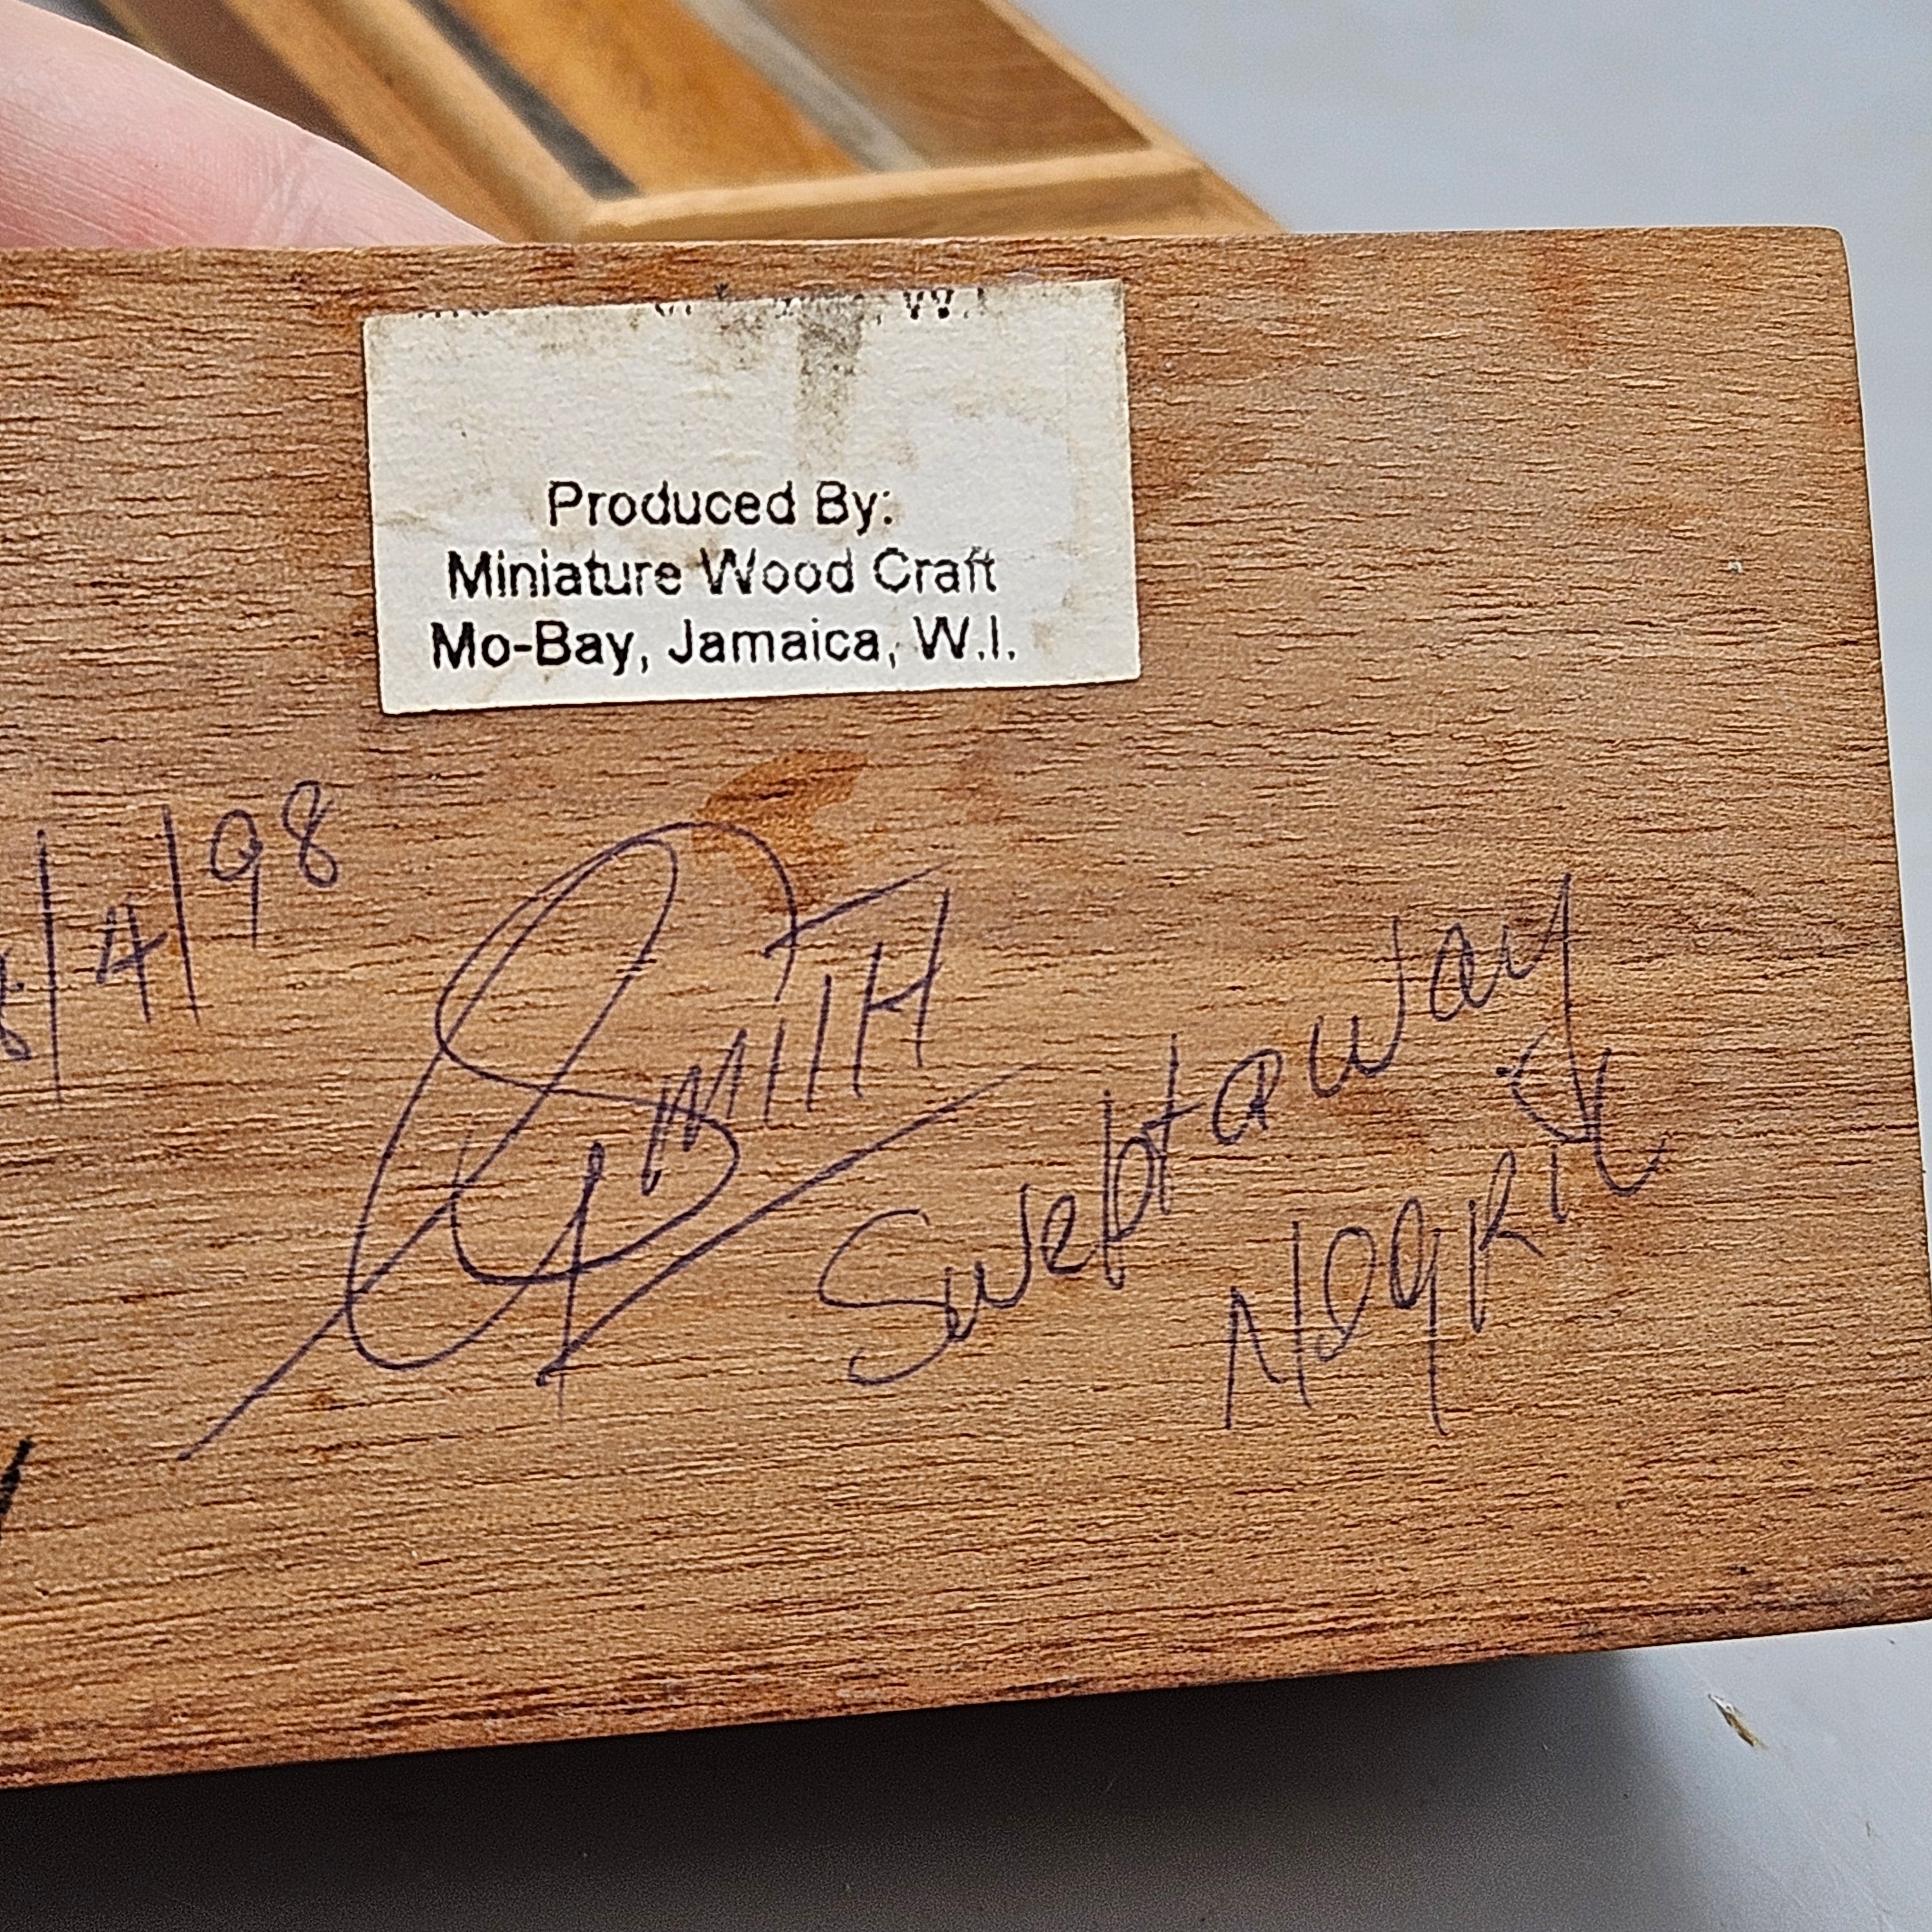 W.I
Produced By:
Miniature Wood Craft
Mo-Bay, Jamaica, W.I.
/4/98
SMITH
Sweptaway
Negril